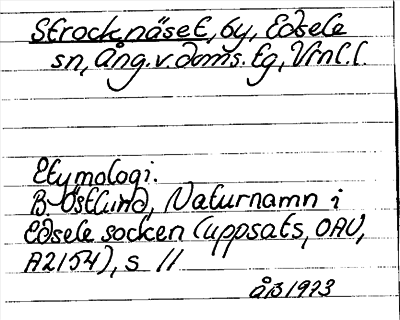 Strocknäset, by, Edsele
sn, Ång.v.doms.tg, Vrnl.l.
Etymologi.
B. Östlund, Naturnamn i
Edsele socken (uppsats, OAU,
A2154), s 11
ÅB 1973